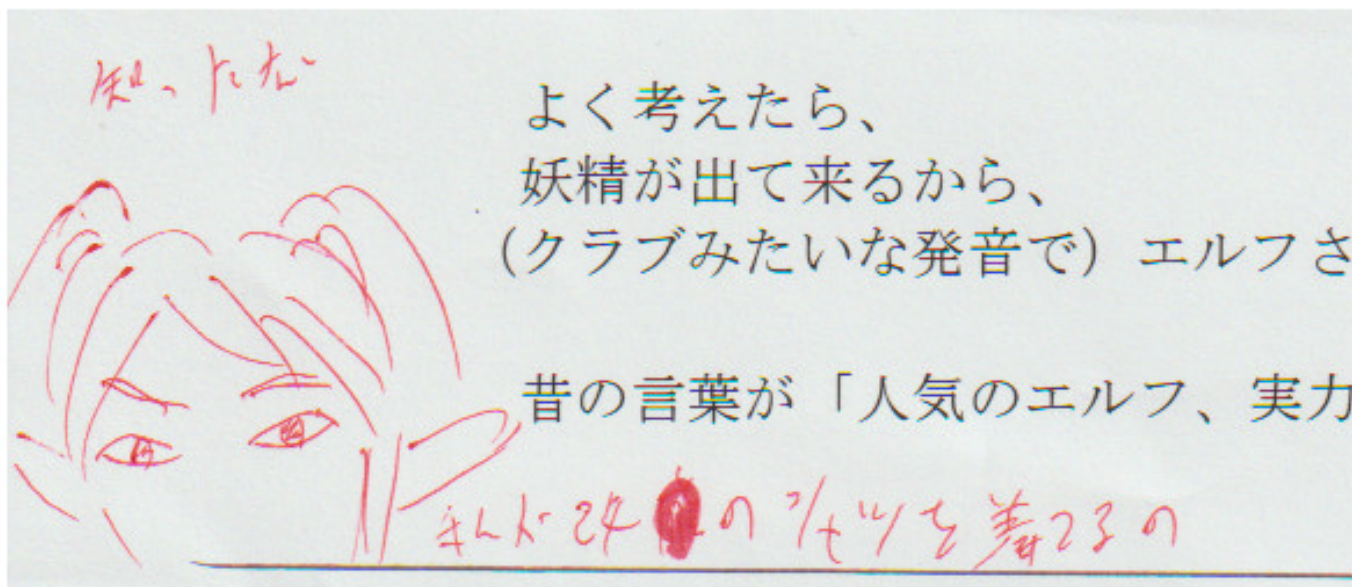 知ったなよ
よく考えたら、
妖精が出て来るから、
(クラブみたいな発音で）エルフさ
昔の言葉が「人気のエルフ、実力
の シャツを着てるの